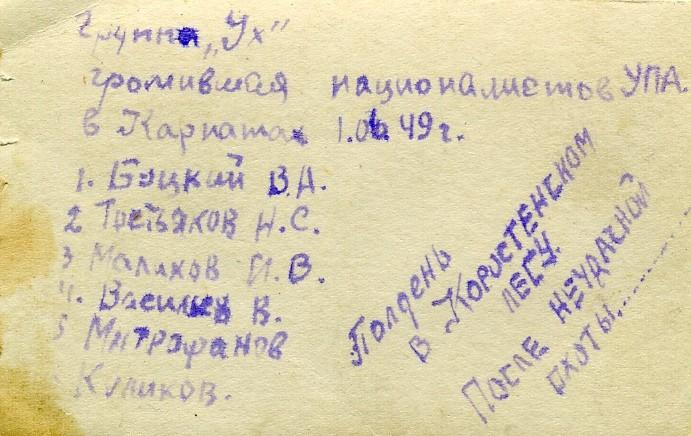 Группа „Ух"
громившая националистов УПА.
в Карпатах 1.06.49г.
1. Боцкий В.А.
2 Третьяков Н.С.
3 Малихов И.В.
4. Васильев В.
5 Митрофанов
Куликов.
Полдень
в Коростенском
лесу.
После неудачной
охоты......